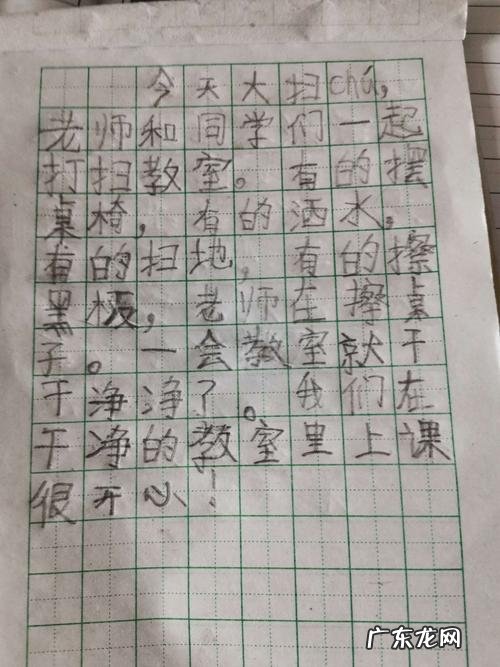 今天大扫chú,
老师和同学们一起
打扫教室。有的摆
桌椅,有的洒水,
有的扫地,有的擦
黑板,老师在擦桌
子。一会教室就干
干净净了。我们在
干净的教室里上课
很开心!
广东龙网